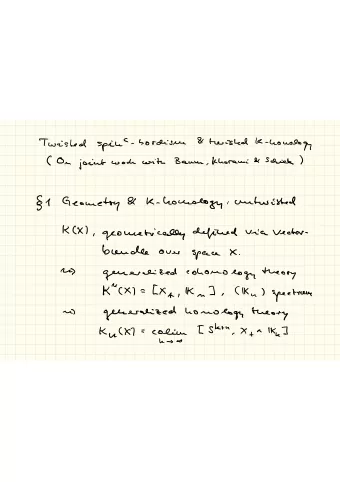 Twisted spin^c-bordism & twisted K-homology
(On joint work with Baum, Khorami & Schick)
§1 Geometry & K-homology, untwisted
K(X), geometrically defined via vector-
bundle over space X.
⇝ generalized cohomology theory
K^n(X) = [X_+, K_n], (K_n) spectrum
⇝ generalized homology theory
K_n(X) = colim [S^{k+n}, X_+ ∧ K_k]
k→∞